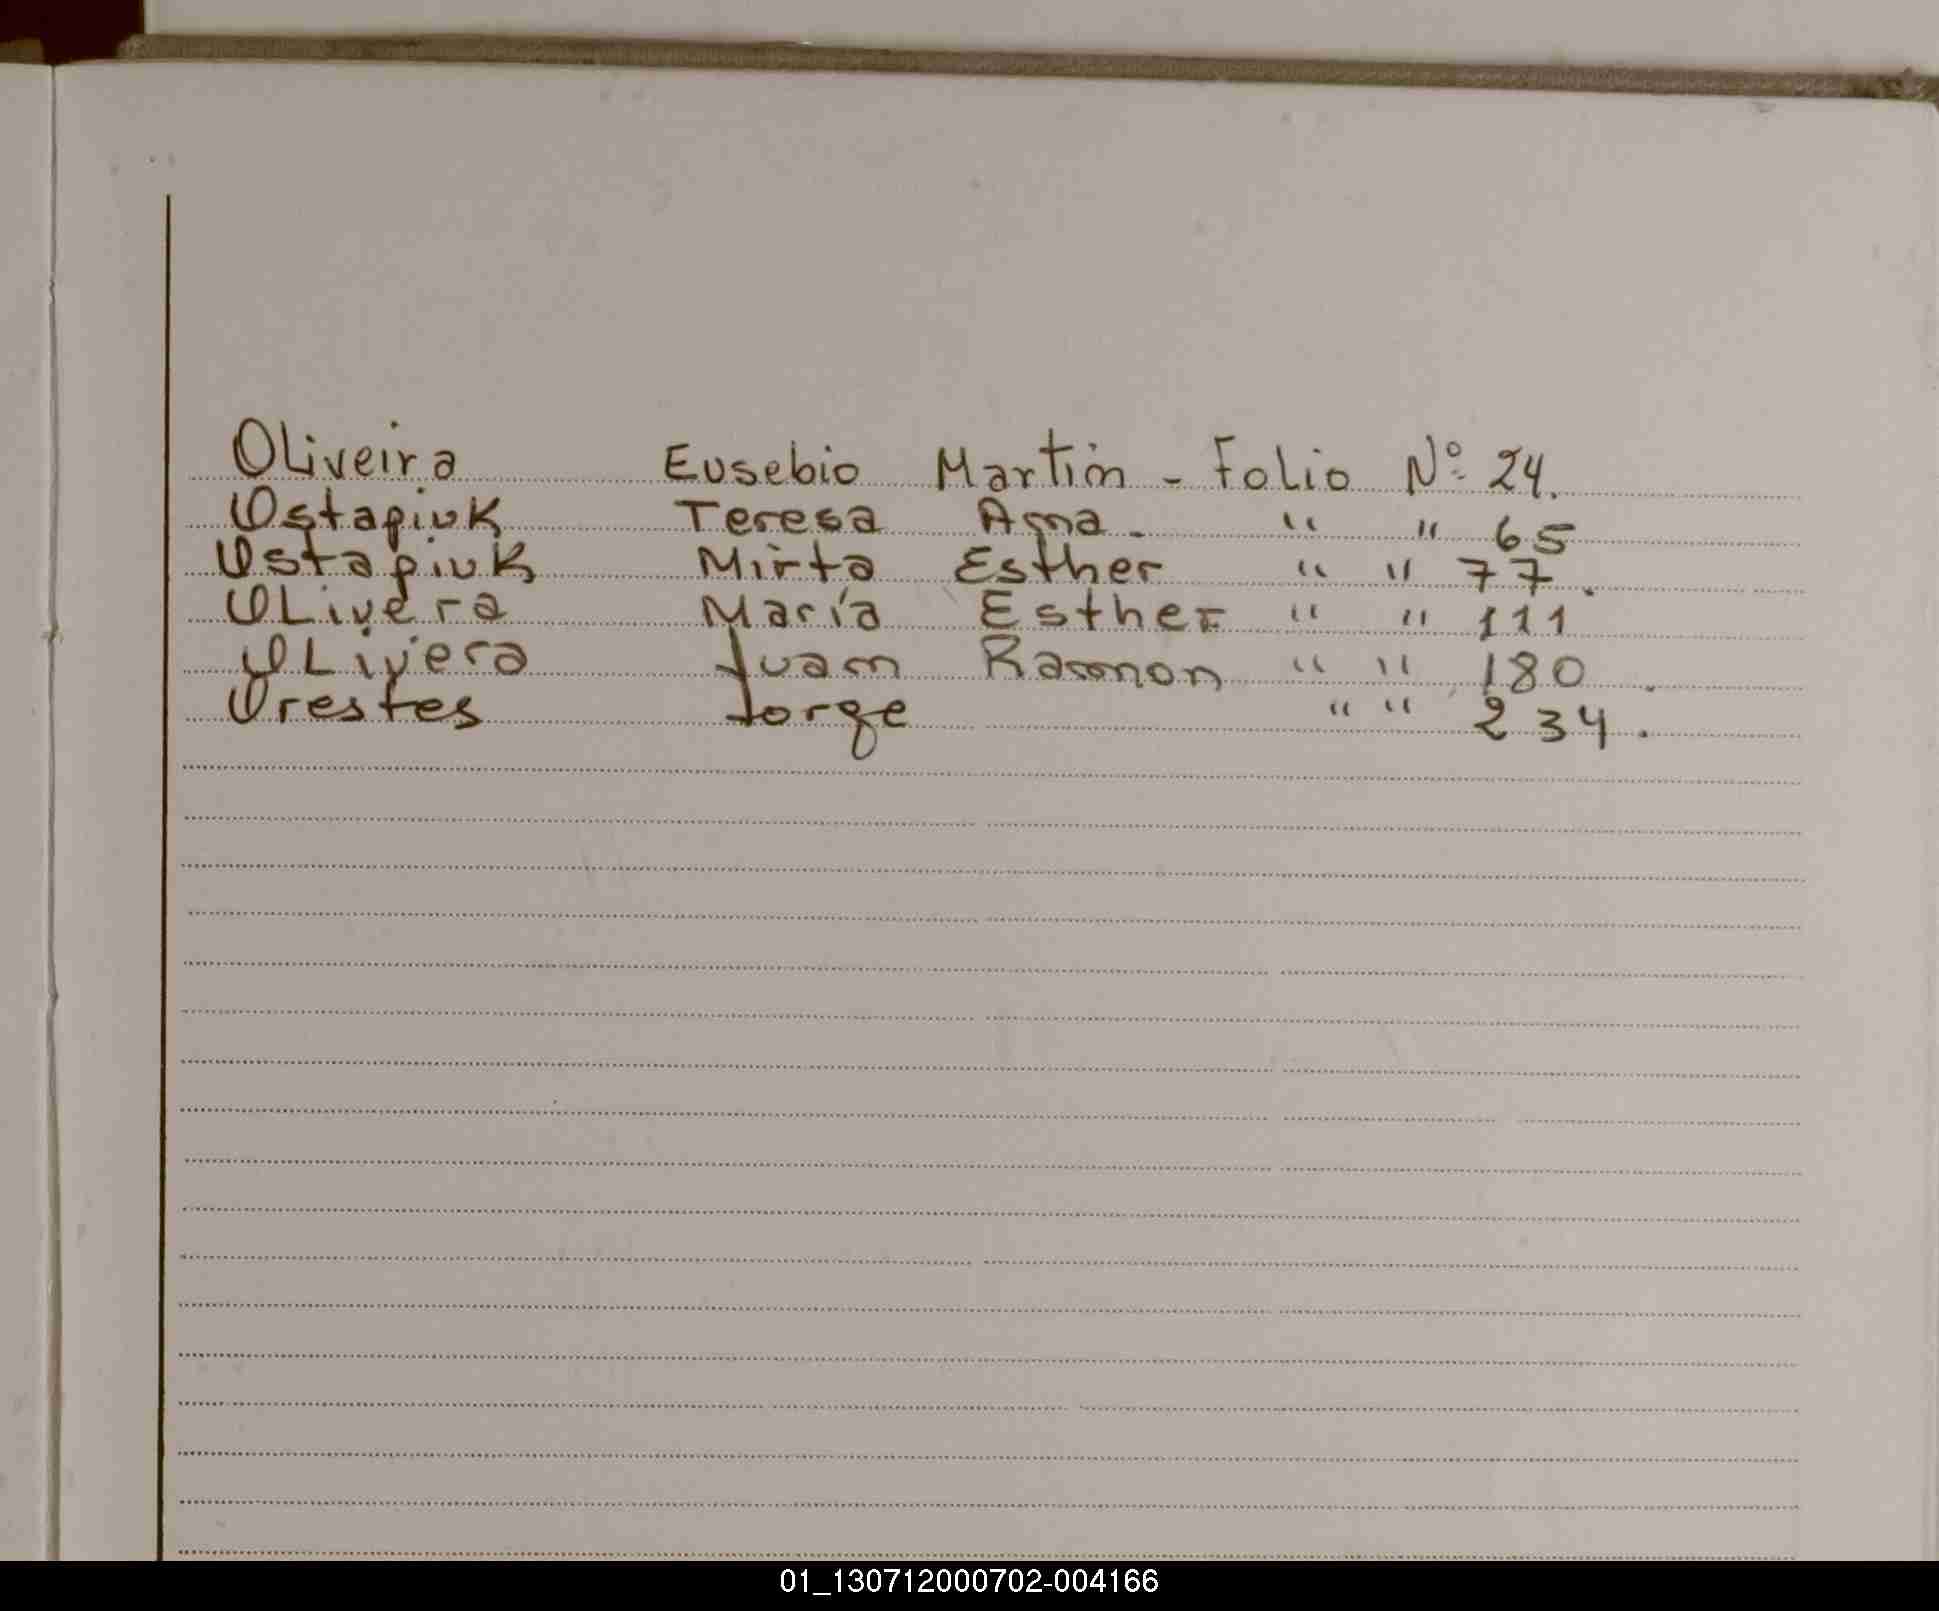 Oliveira Eusebio Martin - Folio Nº 24.
Ostapiuk Teresa Ana - " " 65
Ostapiuk Mirta Esther " " 77.
Olivera María Esther " " 111
Olivera Juan Ramon " " 180.
Orestes Jorge " " 234.
01_130712000702-004166